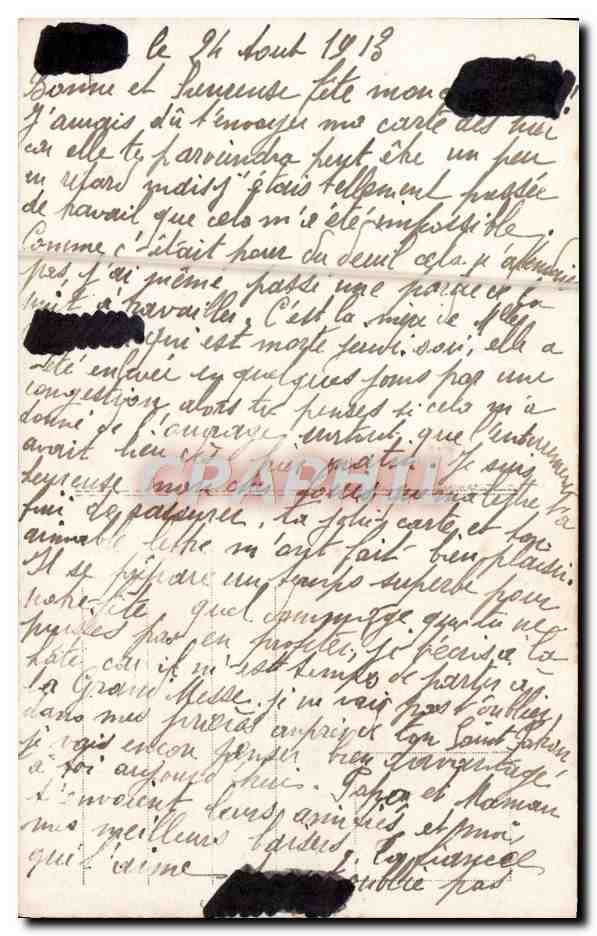 le 24 Aout 1913
Bonne et heureuse fête mon
J'aurais dû t'envoyer ma carte dès hier
car elle te parviendra peut être un peu
en retard mais j'étais tellement pressée
de travail que cela m'a été impossible.
Comme c'était pour du deuil cela n'attendait
pas j'ai même passé une partie de la
nuit à travailler. C'est la mère de Mlles
qui est morte jeudi soir, elle a
été enlevée en quelques jours par une
congestion alors tu penses si cela m'a
donné de l'ouvrage surtout que l'enterrement
avait lieu hier matin. Je suis
heureuse mon que ma lettre t'a
fini de rassurer. Ta jolie carte et ton
aimable lettre m'ont fait bien plaisir.
Il se prépare un temps superbe pour
notre fête quel dommage que tu ne
puisses pas en profiter, je t'écris à la
hâte car il m'est temps de partir à
la Grand Messe je ne vais pas t'oublier
dans mes prières auprès de ton Saint Patron
je vais encore penser bien davantage
à toi aujourd'hui. Papa et Maman
t'envoient leurs amitiés et moi
mes meilleurs baisers. Ta fiancée
qui t'aime et t'oublie pas
CPAPHIL